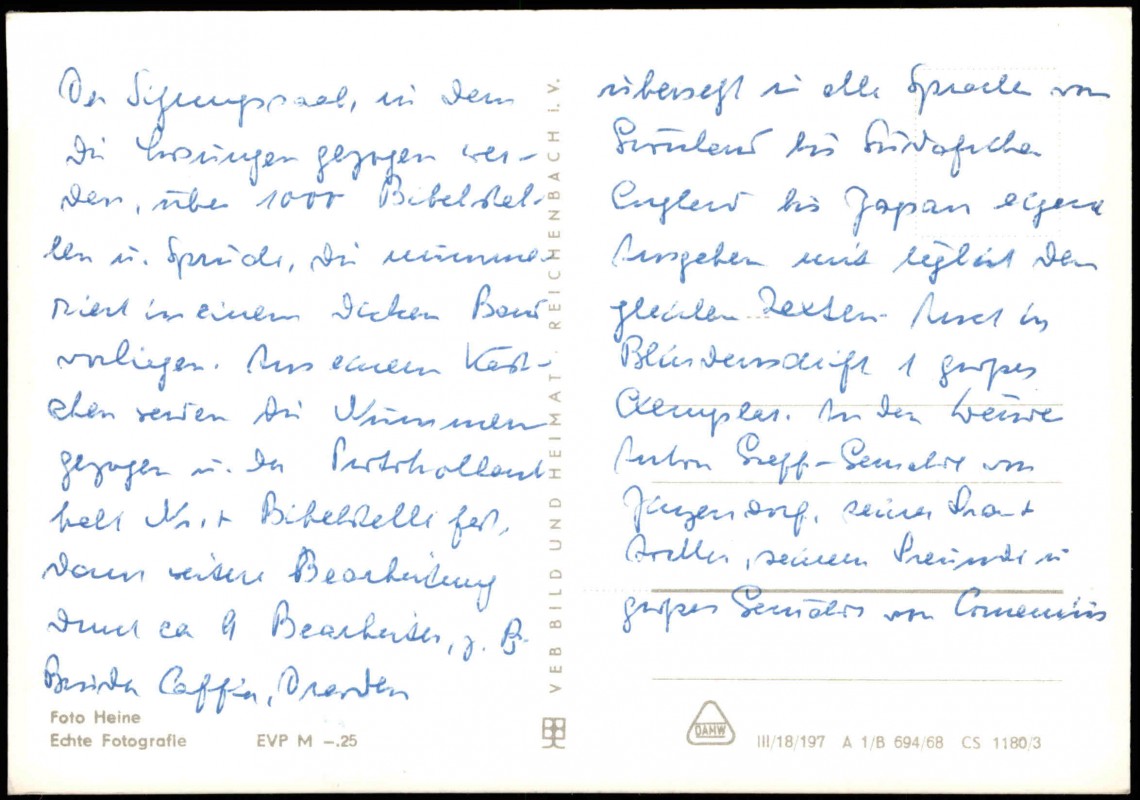 Der Sitzungssaal, in dem
die Losungen gezogen wer-
den, über 1000 Bibelstel-
len u. Sprüche, die numme-
riert in einem dicken Band
vorliegen. Aus einem Käst-
chen werden die Nummern
gezogen u. der Protokollant
hält Nr. + Bibelstelle fest,
dann weitere Bearbeitung
durch ca 9 Bearbeiter, z. B.
Bruder Caffier, Dresden
Foto Heine
Echte Fotografie EVP M –.25
VEB BILD UND HEIMAT REICHENBACH I. V.
übersetzt in alle Sprachen von
Grönland bis Südafrika
England bis Japan eigene
Ausgaben mit täglich den
gleichen Texten. Auch in
Blindenschrift 1 großes
Exemplar. An den Wänden
Anton Greff-Gemälde von
Zinzendorf, seiner Frau +
Mutter, seinem Freunde u
großes Gemälde von Comenius
DAMW
III/18/197 A 1/B 694/68 CS 1180/3